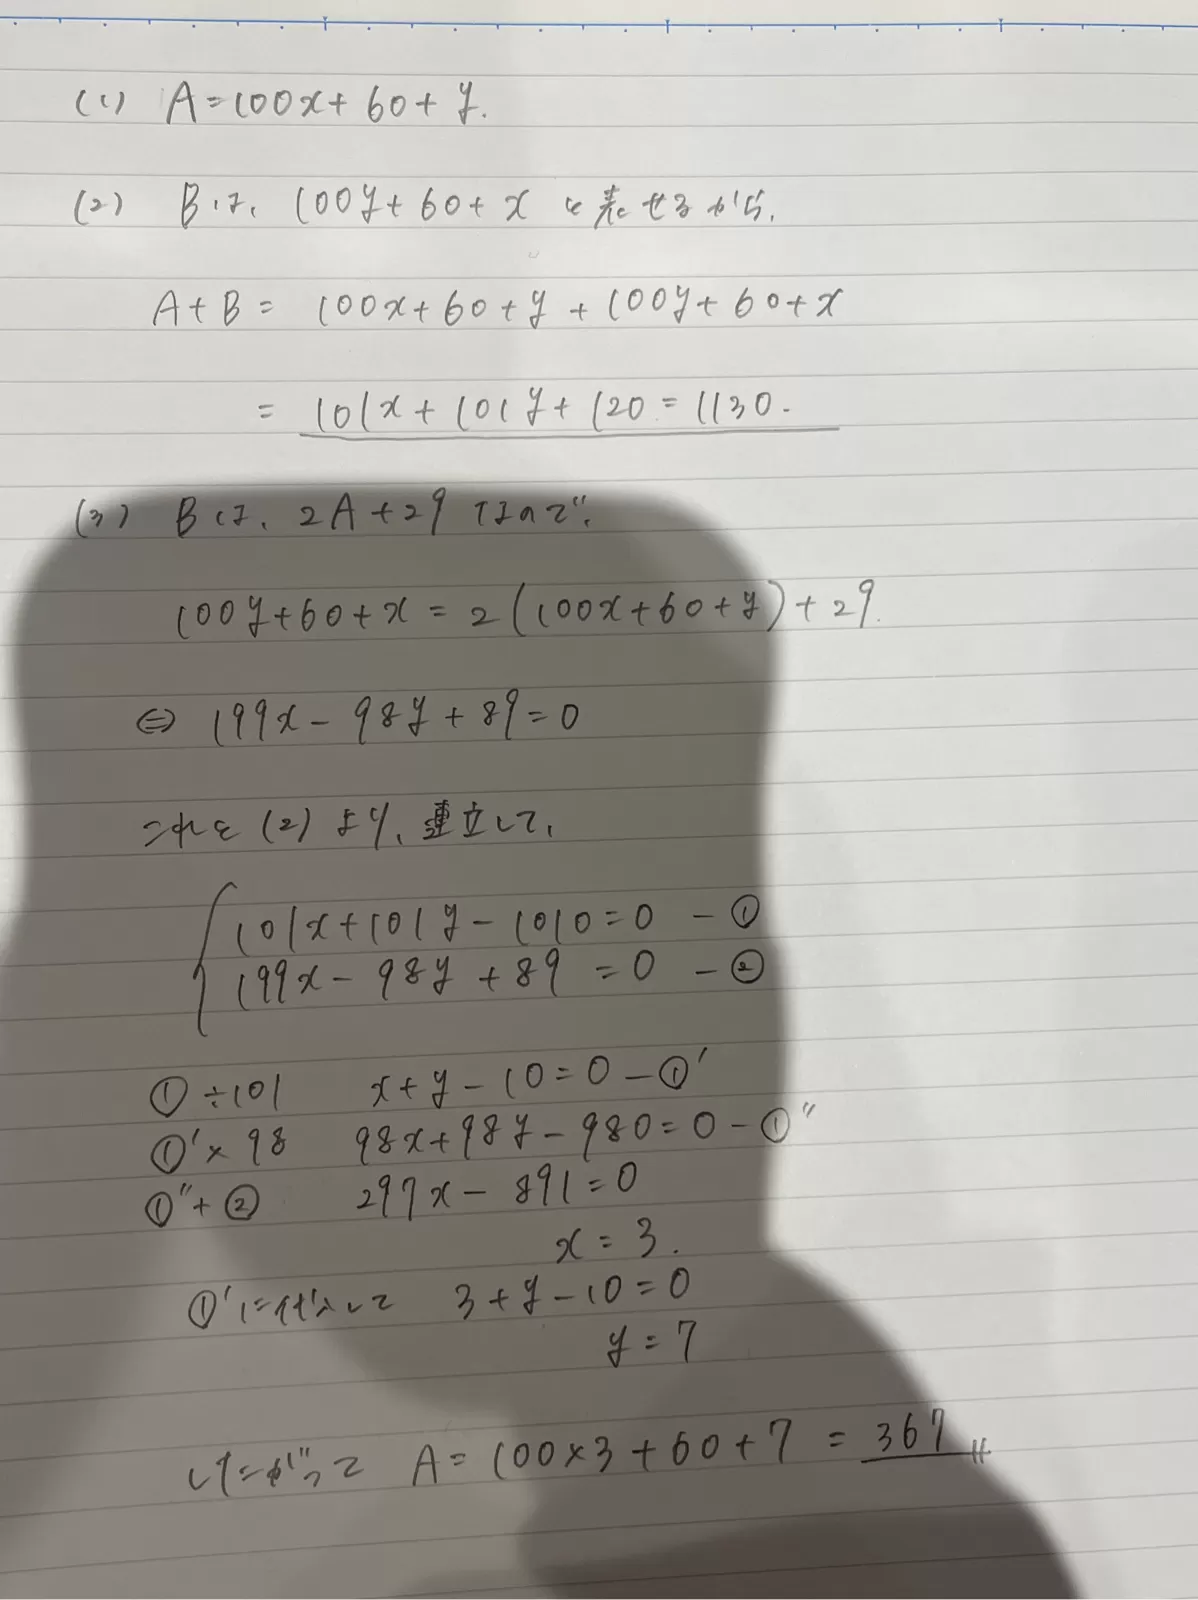 (1) A=100x+60+y.
(2) Bは、100y+60+x と表せるから、
A+B= 100x+60+y+100y+60+x
= 101x+101y+120=1130.
(3) Bは、2A+29 なので、
100y+60+x=2(100x+60+y)+29.
⇔ 199x-98y+89=0
これと(2)より、連立して、
101x+101y-1010=0 -①
199x-98y+89=0 -②
①÷101 x+y-10=0-①'
①'×98 98x+98y-980=0-①''
①''+② 297x-891=0
x=3.
①'に代入して 3+y-10=0
y=7
したがって A=100×3+60+7=367